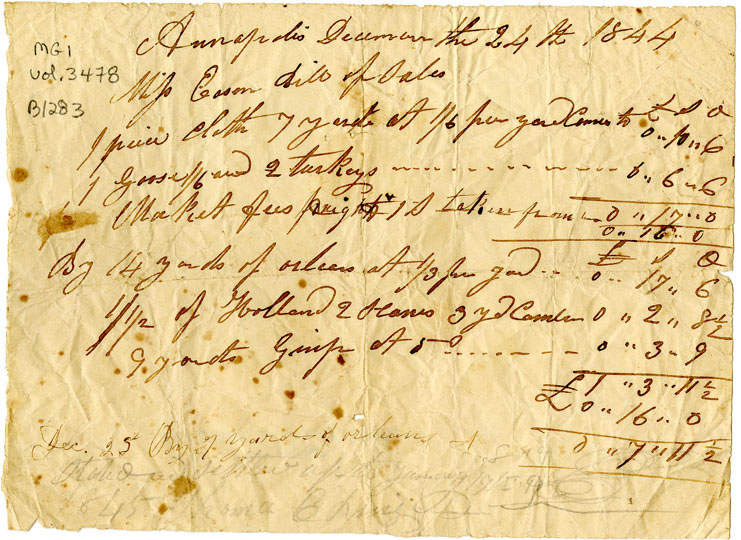 MG1
vol.3478
B1283
Annapolis December the 24th 1844
Miss Eason Bill of Sales
£ S D
1 piece cloth 7 yards at 1/6 per yard Comes to 0 " 10 " 6
1 Goose 1/6 and 2 turkeys 0 " 6 " 6
Market fees freight 1 S taken from 0 " 17 " 0
0 " 16 " 0
£ S D
By 14 yards of orleans at 1/3 per yard 0 " 17 " 6
1 1/2 of Holland 2 3 yd 0 " 2 " 8 1/2
9 yards Gimp at 5 0 " 3 " 9
£ 1 " 3 " 11 1/2
£ 0 " 16 " 0
0 " 7 " 11 1/2
Dec. 25 By 7 yards of orleans at
up to January
1845 Thomas